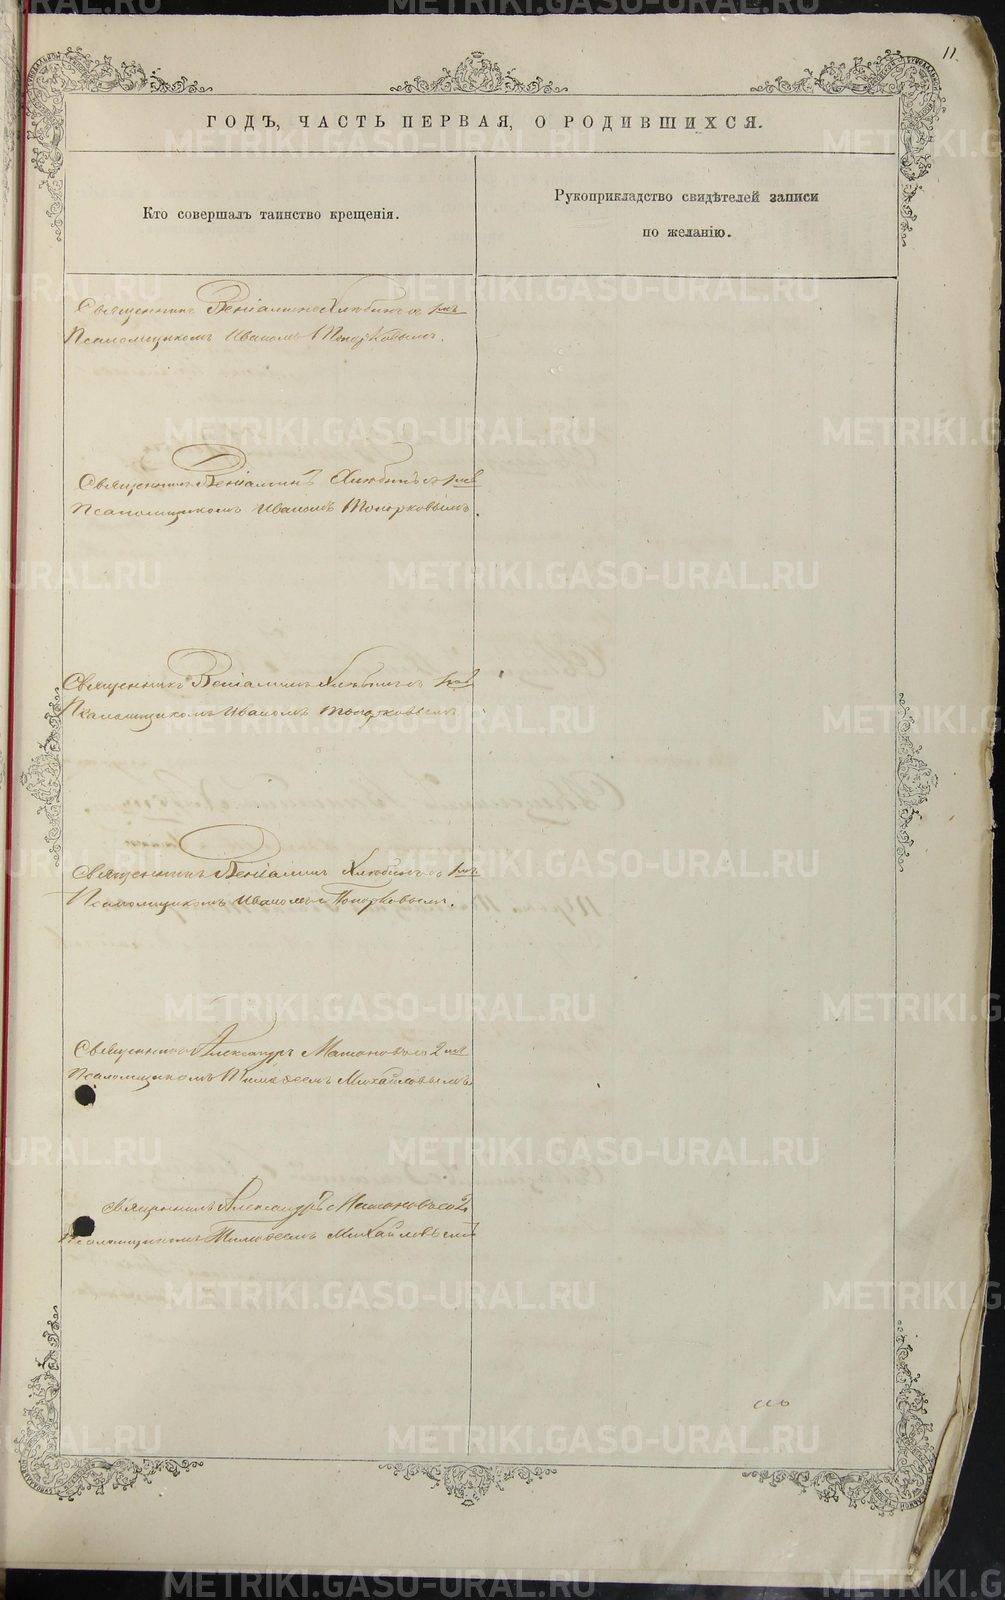 11.
ГОДЪ, ЧАСТЬ ПЕРВАЯ, О РОДИВШИХСЯ.
Кто совершалъ таинство крещенія.
Рукоприкладство свидѣтелей записи
по желанію.
Священникъ Веніаминъ Хлюбинъ съ
Псаломщикомъ Иваномъ Топорковымъ.
Священникъ Веніаминъ Хлюбинъ съ
Псаломщикомъ Иваномъ Топорковымъ.
Священникъ Веніаминъ Хлюбинъ съ
Псаломщикомъ Иваномъ Топорковымъ
Священникъ Веніаминъ Хлюбинъ съ
Псаломщикомъ Иваномъ Топорковымъ.
Священникъ Александръ съ 2
Псаломщикомъ Тимофеемъ Михайловымъ
Священникъ Александръ съ 2
Псаломщикомъ Тимофеемъ Михайловымъ
METRIKI.GASO-URAL.RU